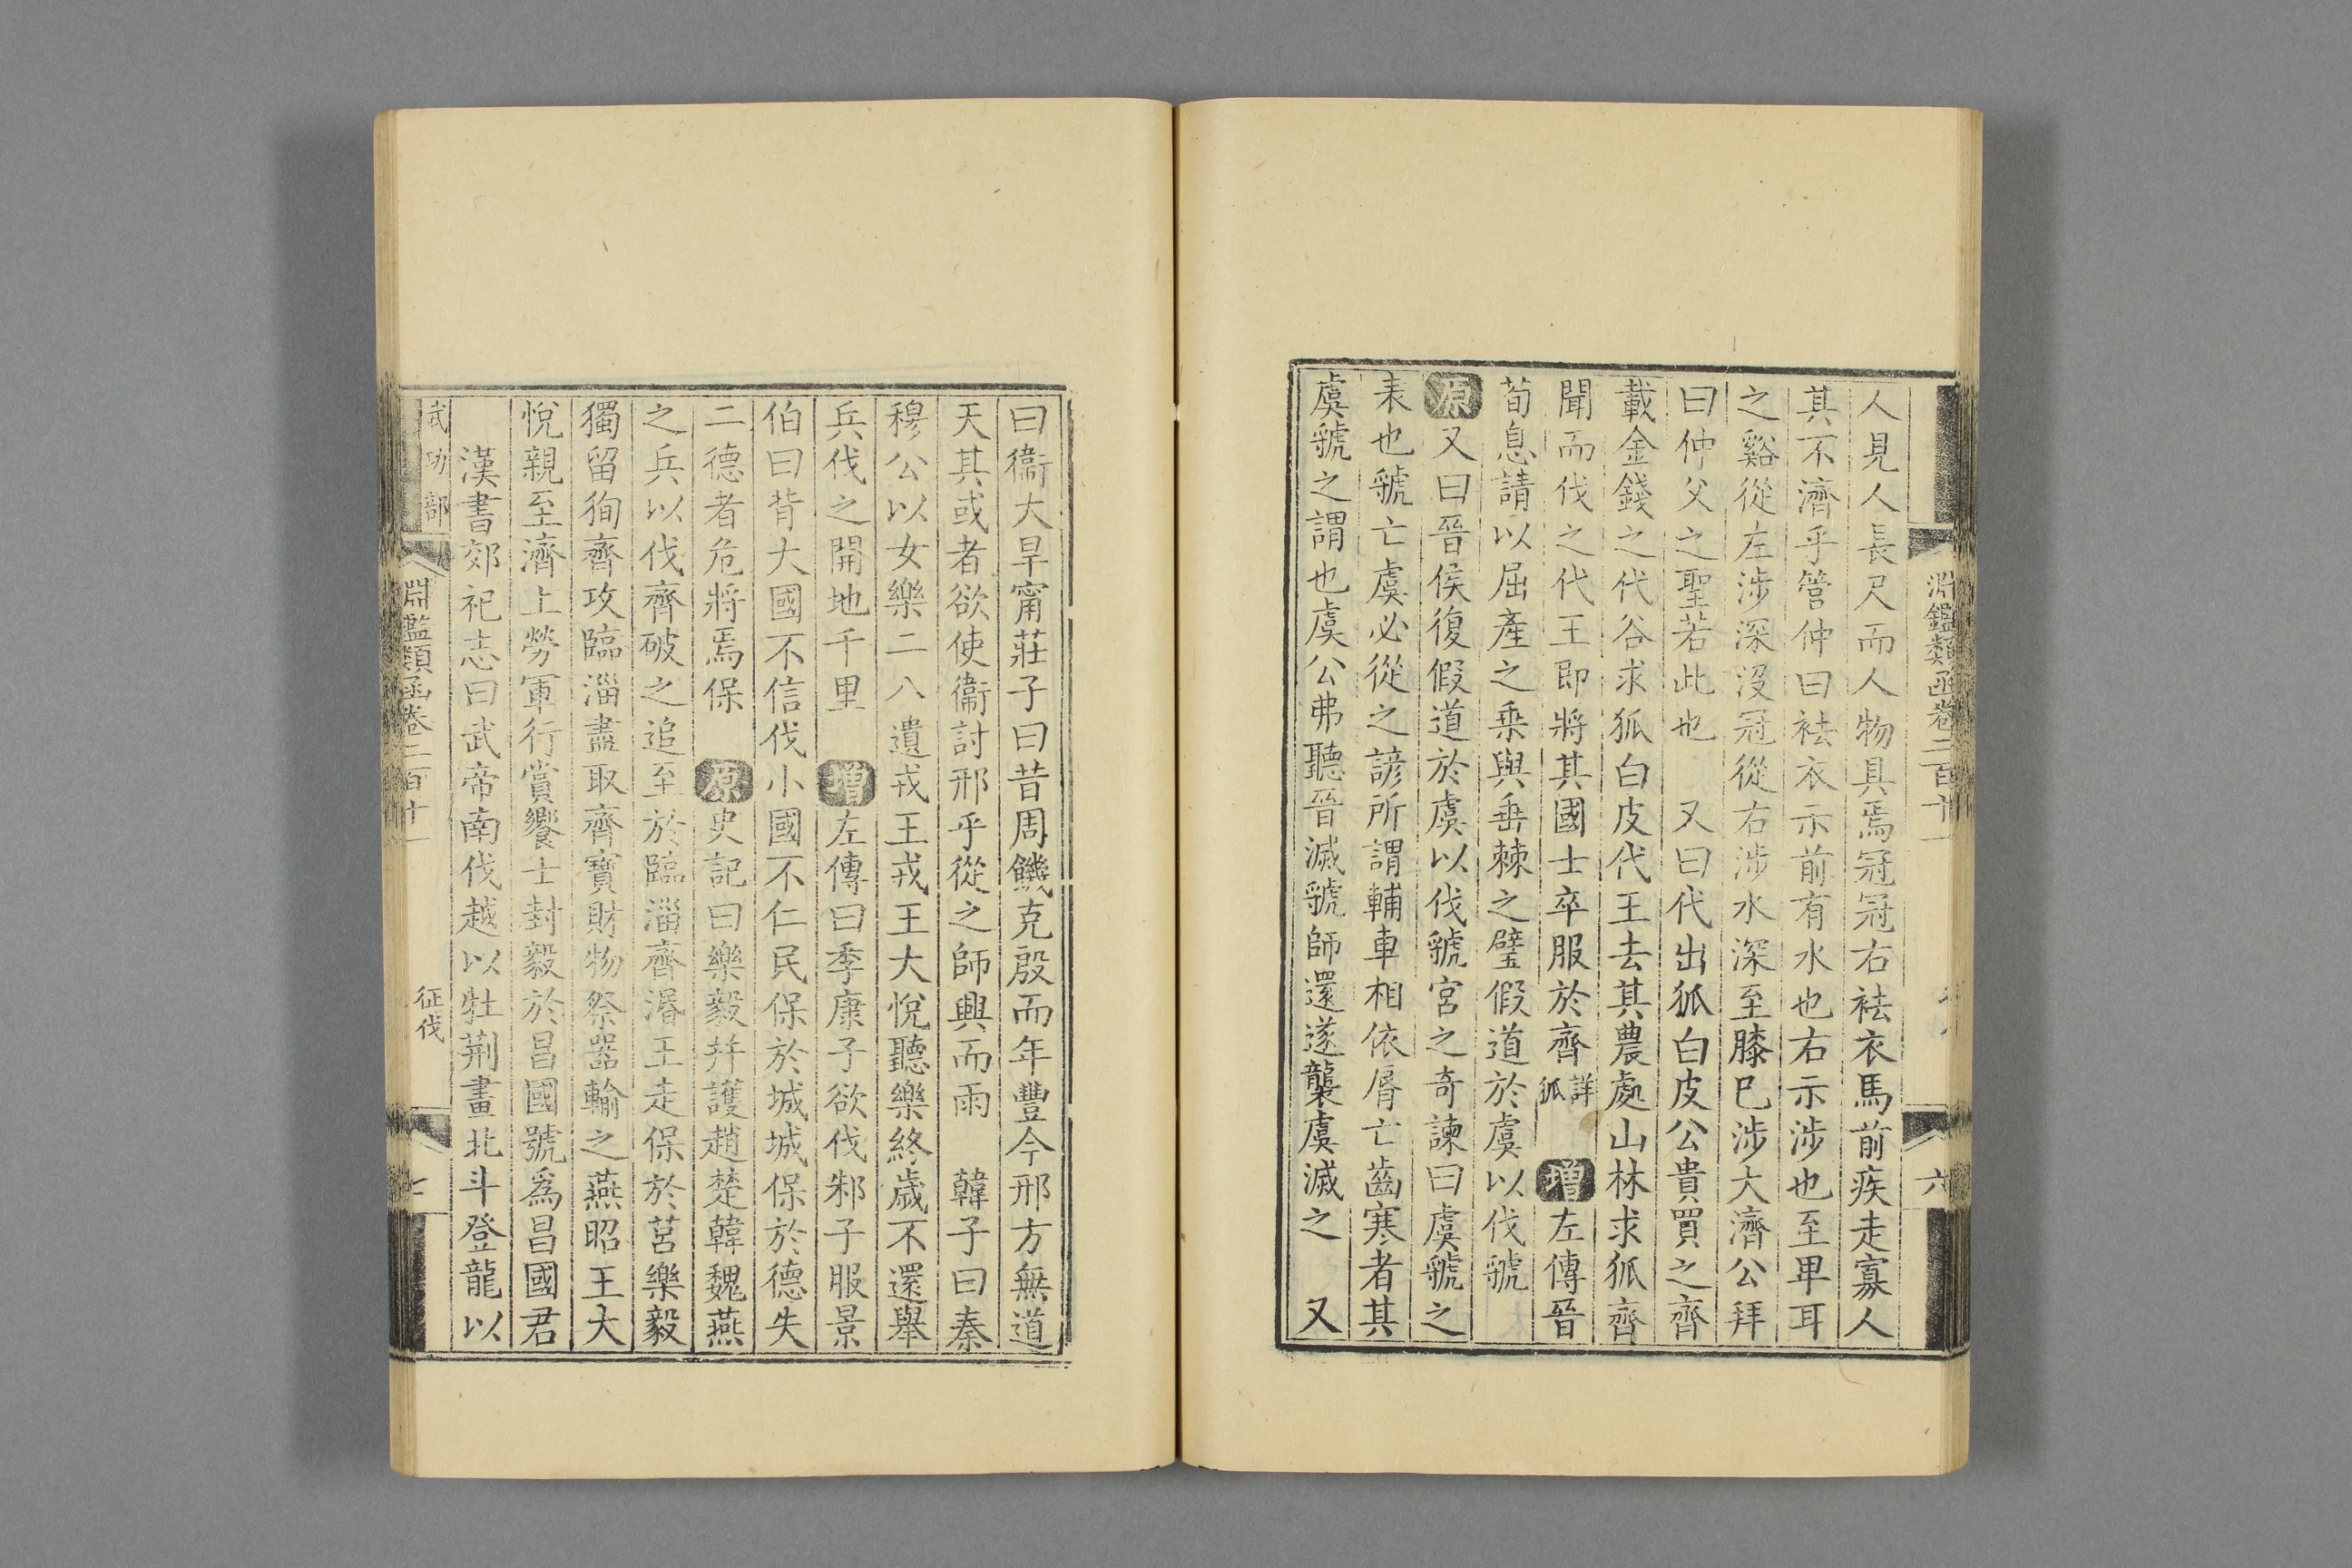 淵鑑類函卷二百十一
六
人見人長尺而人物具焉冠冠右袪衣馬前疾走寡人
其不濟乎管仲曰袪衣示前有水也右示涉也至卑耳
之谿從左涉深沒冠從右涉水深至膝巳涉大濟公拜
曰仲父之聖若此也　又曰代出狐白皮公貴買之齊
載金錢之代谷求狐白皮代王去其農處山林求狐齊
聞而伐之代王即將其國士卒服於齊詳狐　增左傳晉
荀息請以屈產之乗與垂棘之璧假道於虞以伐虢
原又曰晉侯復假道於虞以伐虢宮之奇諫曰虞虢之
表也虢亡虞必從之諺所謂輔車相依脣亡齒寒者其
虞虢之謂也虞公弗聽晉滅虢師還遂襲虞滅之　又
曰衞大旱甯莊子曰昔周饑克殷而年豐今邢方無道
天其或者欲使衞討邢乎從之師興而雨　韓子曰秦
穆公以女樂二八遺戎王戎王大悅聽樂終歲不還舉
兵伐之開地千里　增左傳曰季康子欲伐邾子服景
伯曰背大國不信伐小國不仁民保於城城保於德失
二德者危將焉保　原史記曰樂毅并護趙楚韓魏燕
之兵以伐齊破之追至於臨淄齊湣王走保於莒樂毅
獨留徇齊攻臨淄盡取齊寶財物祭器輸之燕昭王大
悅親至濟上勞軍行賞饗士封毅於昌國號爲昌國君
漢書郊祀志曰武帝南伐越以牡荆畫北斗登龍以
武功部
淵鑑類函卷二百十一
征伐
七